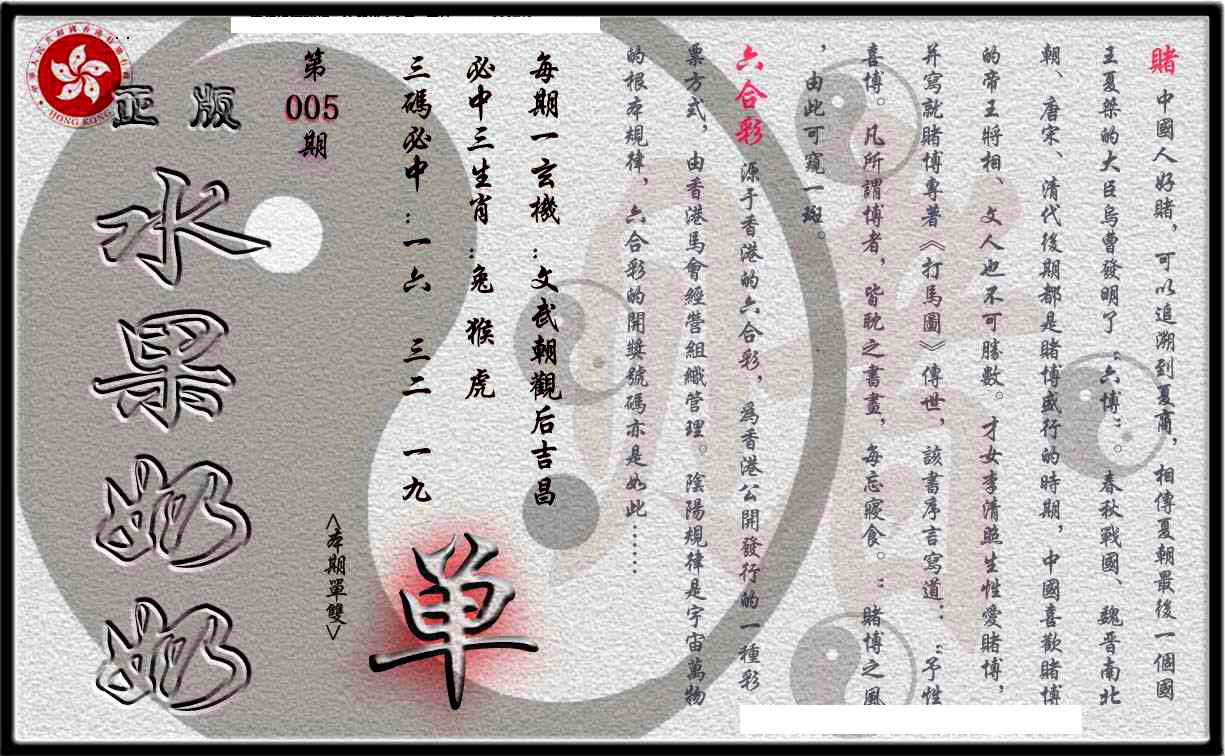 賭 中國人好賭，可以追溯到夏商，相傳夏朝最後一個國
王夏桀的大臣烏曹發明了“六博”。春秋戰國、魏晋南北
朝、唐宋、清代後期都是賭博盛行的時期，中國喜歡賭博
的帝王將相、文人也不可勝數。才女李清照生性愛賭博，
并寫就賭博專著《打馬圖》傳世，該書序言寫道：“予性
喜博。凡所謂博者，皆耽之書畫，每忘寢食。：賭博之風
，由此可窺一斑。
六合彩 源于香港的六合彩，為香港公開發行的一種彩
票方式，由香港馬會經營組織管理。陰陽規律是宇宙萬物
的根本規律，六合彩的開獎號碼亦是如此……
每期一玄機：文武朝觀后吉昌
必中三生肖：兔 猴 虎
三碼必中：一六 三二 一九
單
<本期單雙>
第
005
期
正版
水果奶奶
HONG KONG